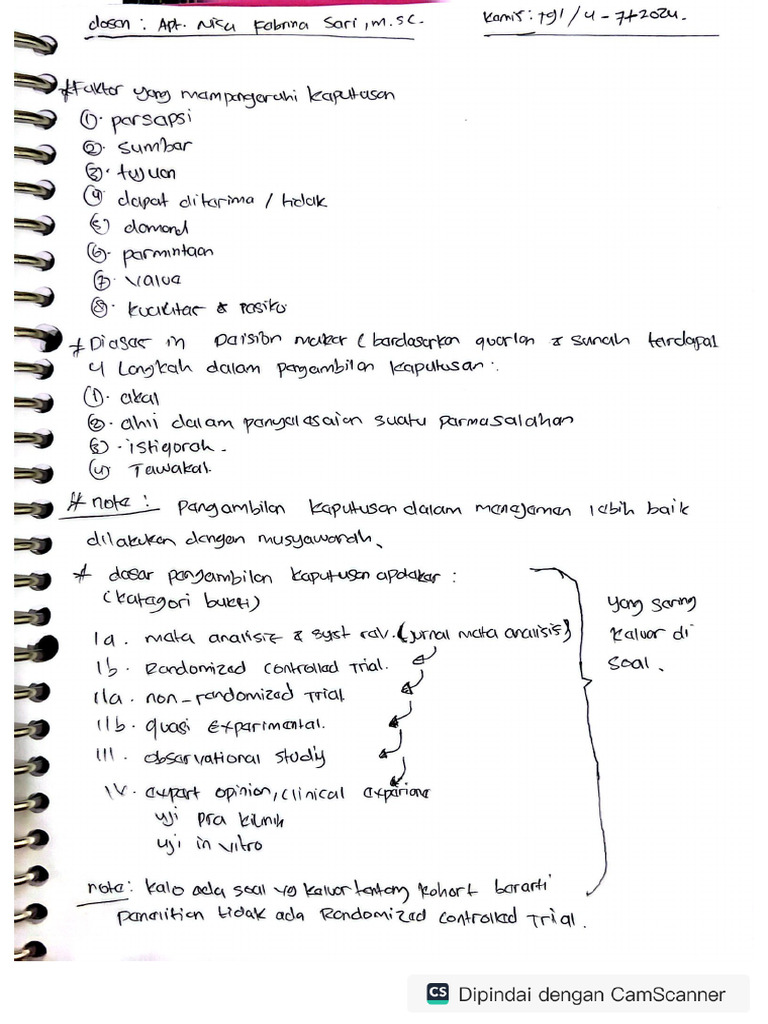 dosen : Apt. Nisa Febrina Sari, M.Sc.
Kamis : 791/4-7+2024.
* Faktor yang mempengaruhi keputusan
①. persepsi
②. sumber
③. tujuan
④ dapat diterima / tidak
⑤ demand
⑥. permintaan
⑦. value
⑧. kualitas & resiko
* Diasar in Daision maker ( berdasarkan quorlan & sunah terdapat
4 Langkah dalam pengambilan keputusan :
①. akal
②. ahli dalam penyelesaian suatu permasalahan
③. istiqoroh.
④ Tawakal.
# note : Pengambilan keputusan dalam menejemen lebih baik
dilakukan dengan musyawarah.
* dasar pengambilan keputusan apoteker :
(katagori bukti)
Ia. meta analisis & syst rev. (jurnal meta analisis)
Ib. Randomized controlled Trial.
IIa. non-randomized Trial
IIb. quasi Experimental.
III. observational study
IV. expert opinion, clinical experience
uji pra klinik
uji in vitro
yang sering
keluar di
soal.
note : kalo ada soal yg keluar tentang kohort berarti
penelitian tidak ada Randomized controlled Trial.
CS Dipindai dengan CamScanner